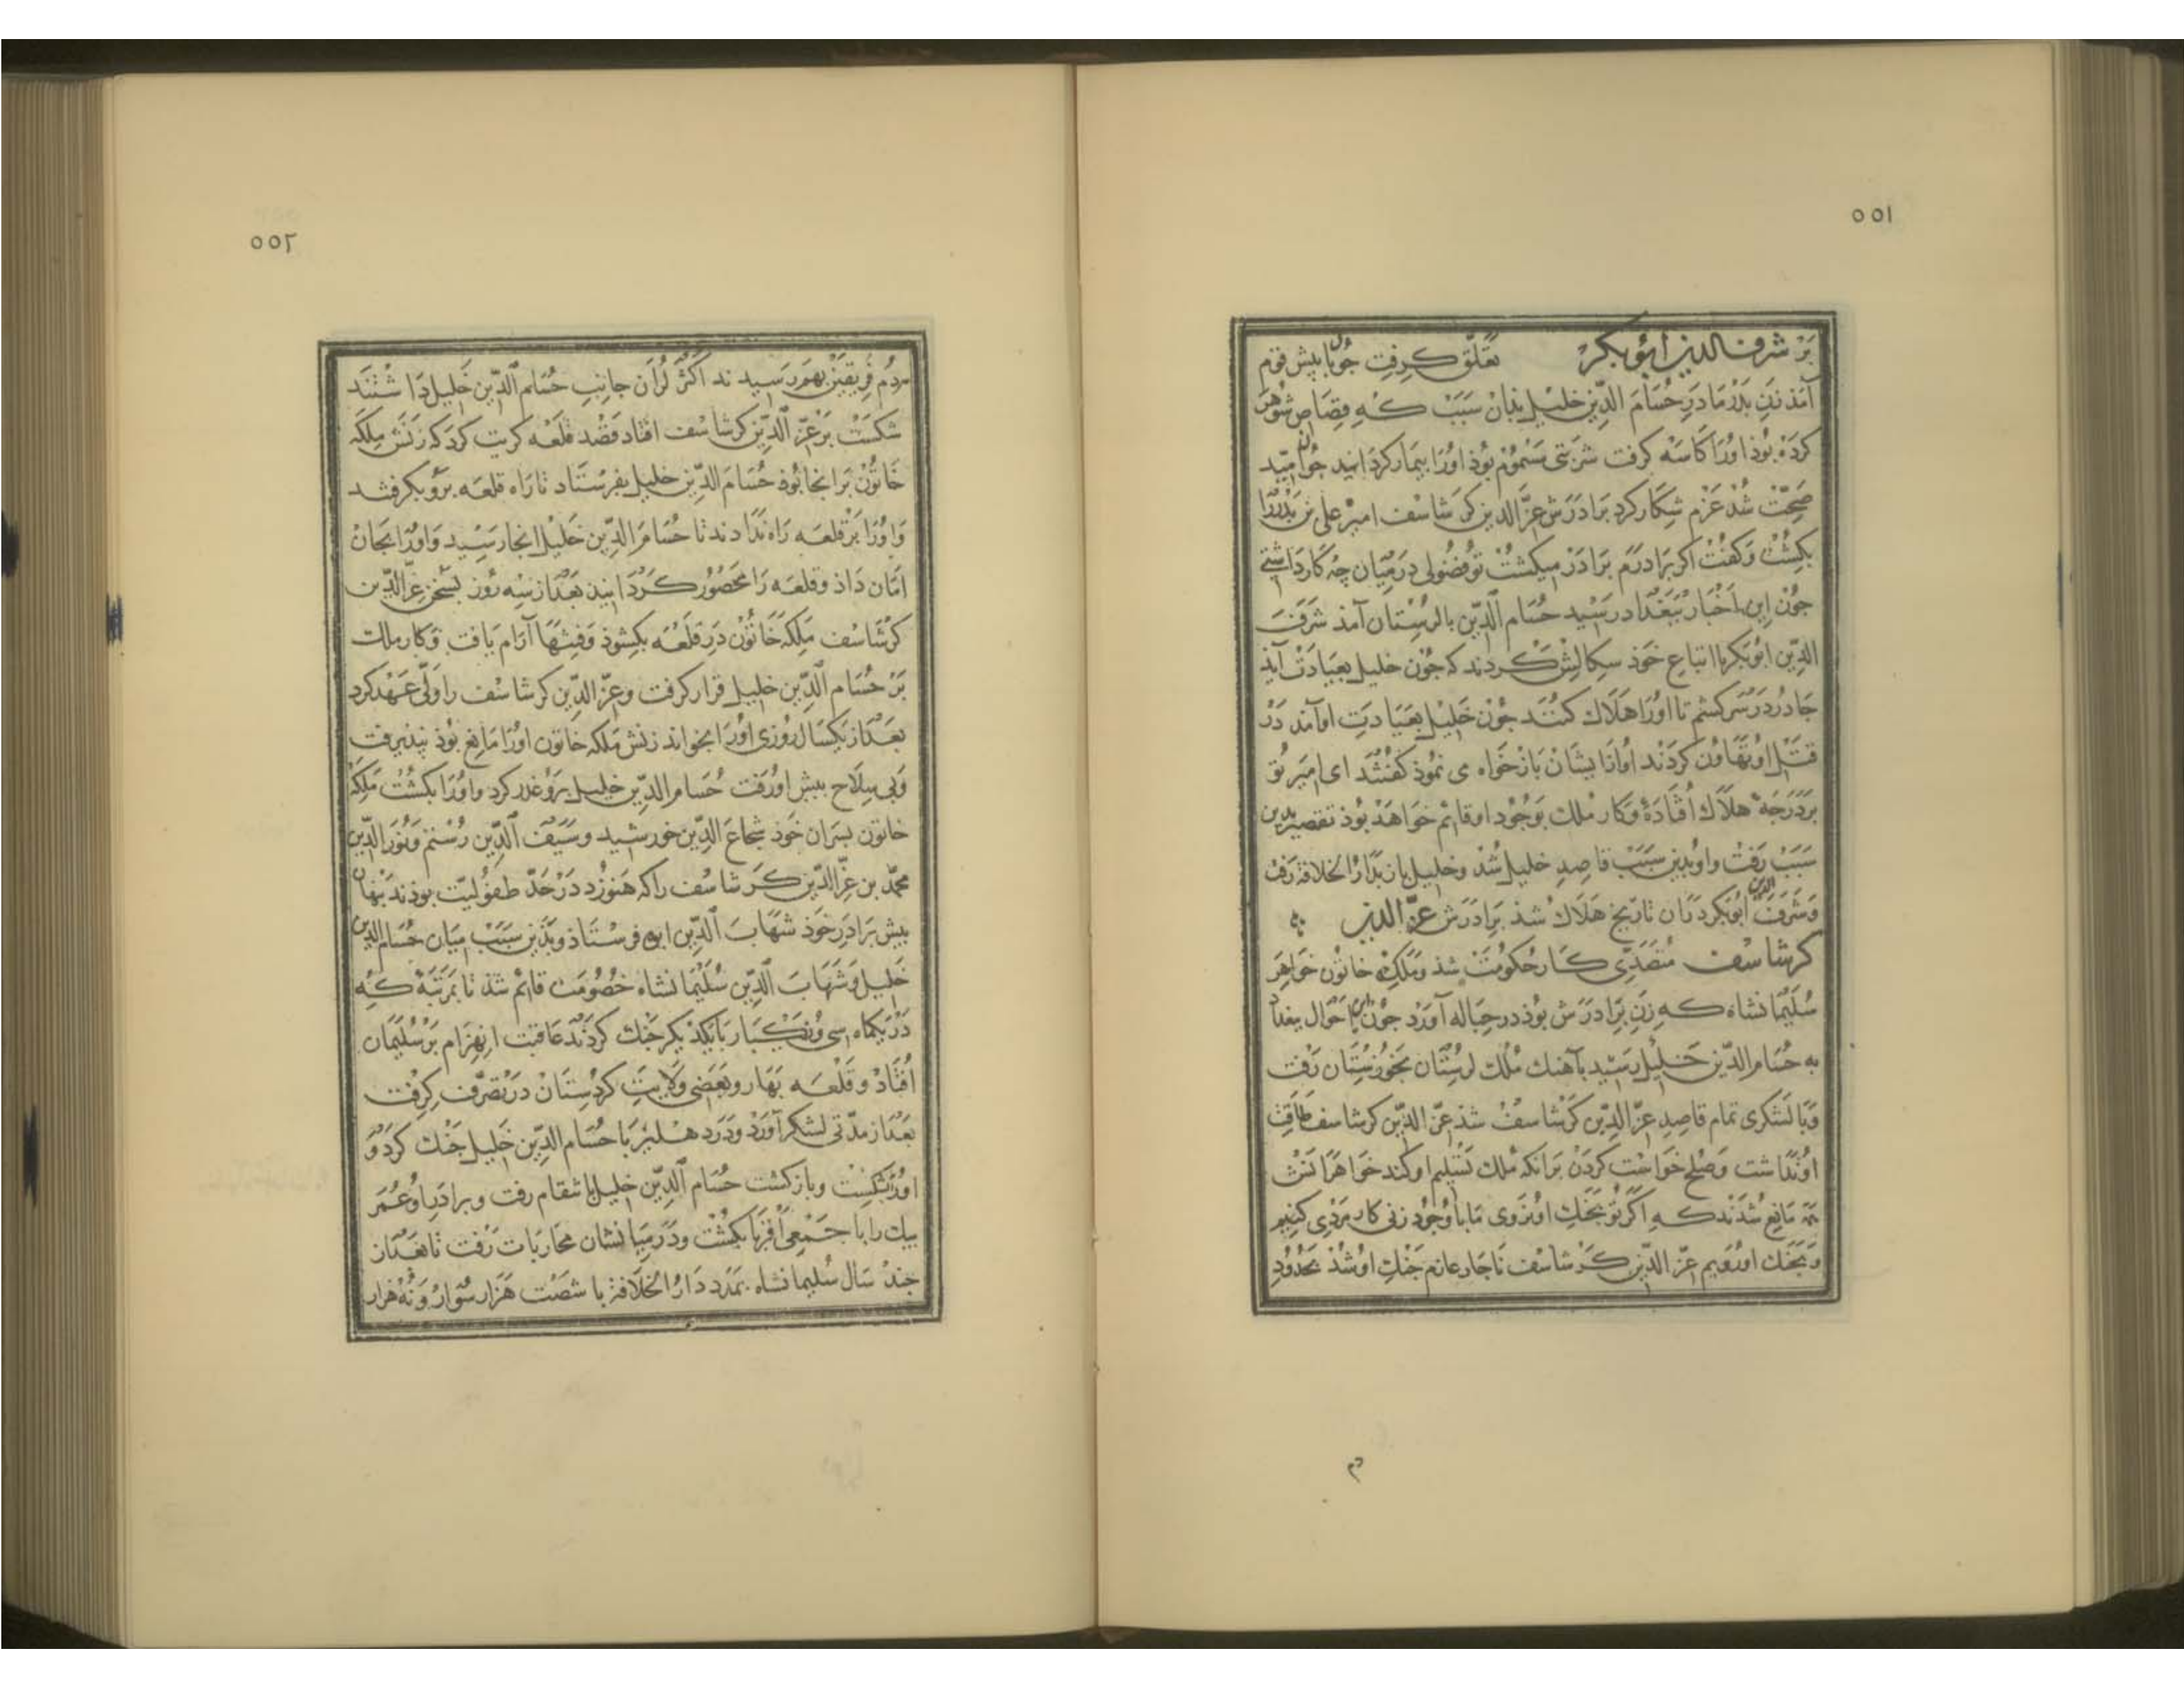 ٥٥١
بر شرف الدین ابوبکر تعلق کرفت چون با پیش قوم
آمذ زن بدر مادر حسام الدین خلیل بذان سبب کی قصاص شوهر
کرده بوذ او را کاسه کرفت شربتی مسموم بوذ او را بیمار کردانید چون امید
صحت شد عزم شکار کرد برادرش عز الدین کرشاسف امیر علی بن بدر را
بکشت و کفت اکر برادرم برادر میکشت تو فضولی در میان چه کار داشتی
جون این اخبار ببغداد رسید حسام الدین با لرستان آمذ شرف
الدین ابوبکر با اتباع خوذ سکالش کردند که جون خلیل بعیادت آید
جادر در سر کشم تا او را هلاک کنند جون خلیل بعیادت او آمد در
قتل او تهاون کردند او از ایشان بازخواه می نموذ کفتند ای امیر تو
بر درجه هلاک افتاده و کار ملک بوجود او قائم خواهد بوذ تقصیر بدین
سبب رفت و او بدین سبب قاصد خلیل شد و خلیل باز بدار الخلافة رفت
و شرف الدین ابوبکر در آن تاریخ هلاک شذ برادرش عز الدین
کرشاسف متصدی کار حکومت شذ و ملکه خاتون خواهر
سلیمانشاه که زن برادرش بوذ در حباله آورد جون این احوال ببغداد
به حسام الدین خلیل رسید بآهنک ملک لرستان بخوزستان رفت
و با لشکری تمام قاصد عز الدین کرشاسف شذ عز الدین کرشاسف طاقت
او نداشت و صلح خواست کردن بر آنکه ملک تسلیم او کند خواهر زنش
مانع شدند که اکر تو بجنک او نروی ما با وجود زنی کار مردی کنیم
و بجنک او رویم عز الدین کرشاسف ناجار عازم جنک او شذ بحدود
٥٥٢
مردم فریقین بهم رسیدند اکثر لران جانب حسام الدین خلیل داشتند
شکست بر عز الدین کرشاسف افتاد قصد قلعه کریت کرد که زنش ملکه
خاتون برانجا بوذ حسام الدین خلیل بفرستاد تا راه قلعه برو بکرفتند
و او را بر قلعه راه ندادند تا حسام الدین خلیل انجا رسید و او را بجان
امان داذ و قلعه را محصور کردانید بعد از سه روز بسخن عز الدین
کرشاسف ملکه خاتون در قلعه بکشوذ و فتنها آرام یافت و کار ملک
بر حسام الدین خلیل قرار کرفت و عز الدین کرشاسف را ولی عهد کرد
بعد از یکسال روزی او را بخواند زنش ملکه خاتون او را مانع بوذ نپذیرفت
و بی سلاح بیش او رفت حسام الدین خلیل برو غدر کرد و او را بکشت ملکه
خاتون بسران خوذ شجاع الدین خورشید و سیف الدین رستم و نور الدین
محمد بن عز الدین کرشاسف را که هنوز در حد طفولیت بوذند بنهان
بیش برادر خوذ شهاب الدین فرستاذ و بذین سبب میان حسام الدین
خلیل و شهاب الدین سلیمانشاه خصومت قائم شذ تا بمرتبه که
در یکماه سی و یکبار با یکدیکر جنک کردند عاقبت انهزام بر سلیمان
افتاد و قلعه بهار و بعضی ولایت کردستان در تصرف کرفت
بعد از مدتی لشکر آورد و در دهلیز با حسام الدین خلیل جنک کرد و
او را بشکست و بازکشت حسام الدین خلیل با شقام رفت و برادر او عمر
بیک را با جمعی اقربا بکشت و در میانشان محاربات رفت تا بعد از
جند سال سلیمانشاه بمدد دار الخلافة با شصت هزار سوار و نه هزار